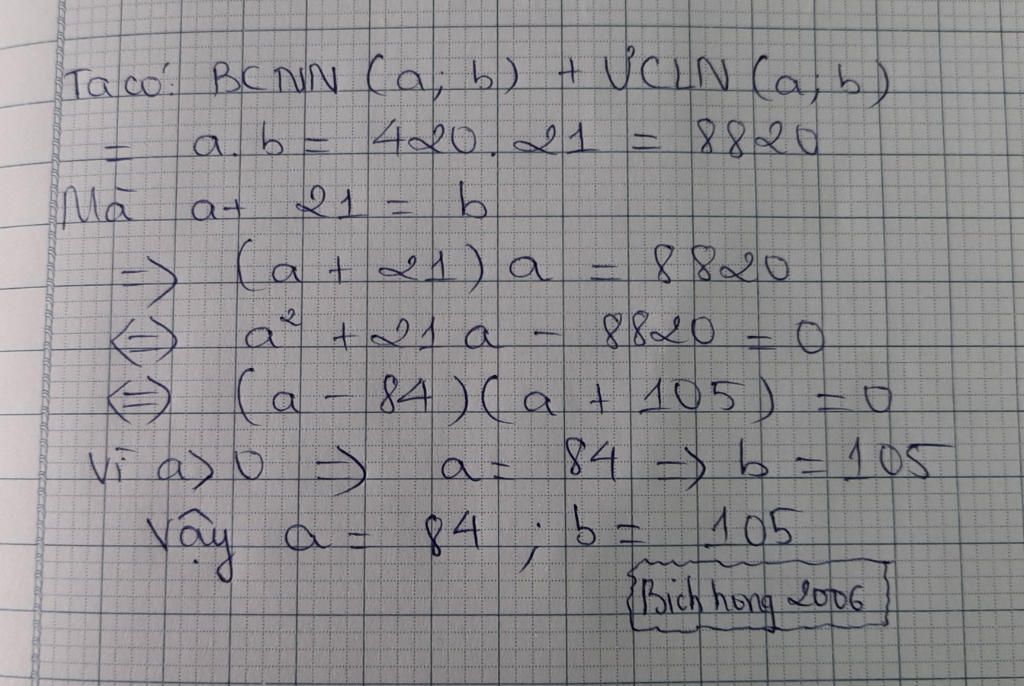 Ta có: BCNN (a; b) + ƯCLN (a; b)
= a.b = 420.21 = 8820
Mà a+ 21 = b
=> (a + 21) a = 8820
<=> a² + 21 a - 8820 = 0
<=> (a - 84)(a + 105) = 0
Vì a> 0 => a = 84 => b = 105
Vậy a = 84 ; b = 105
Bich hong 2006